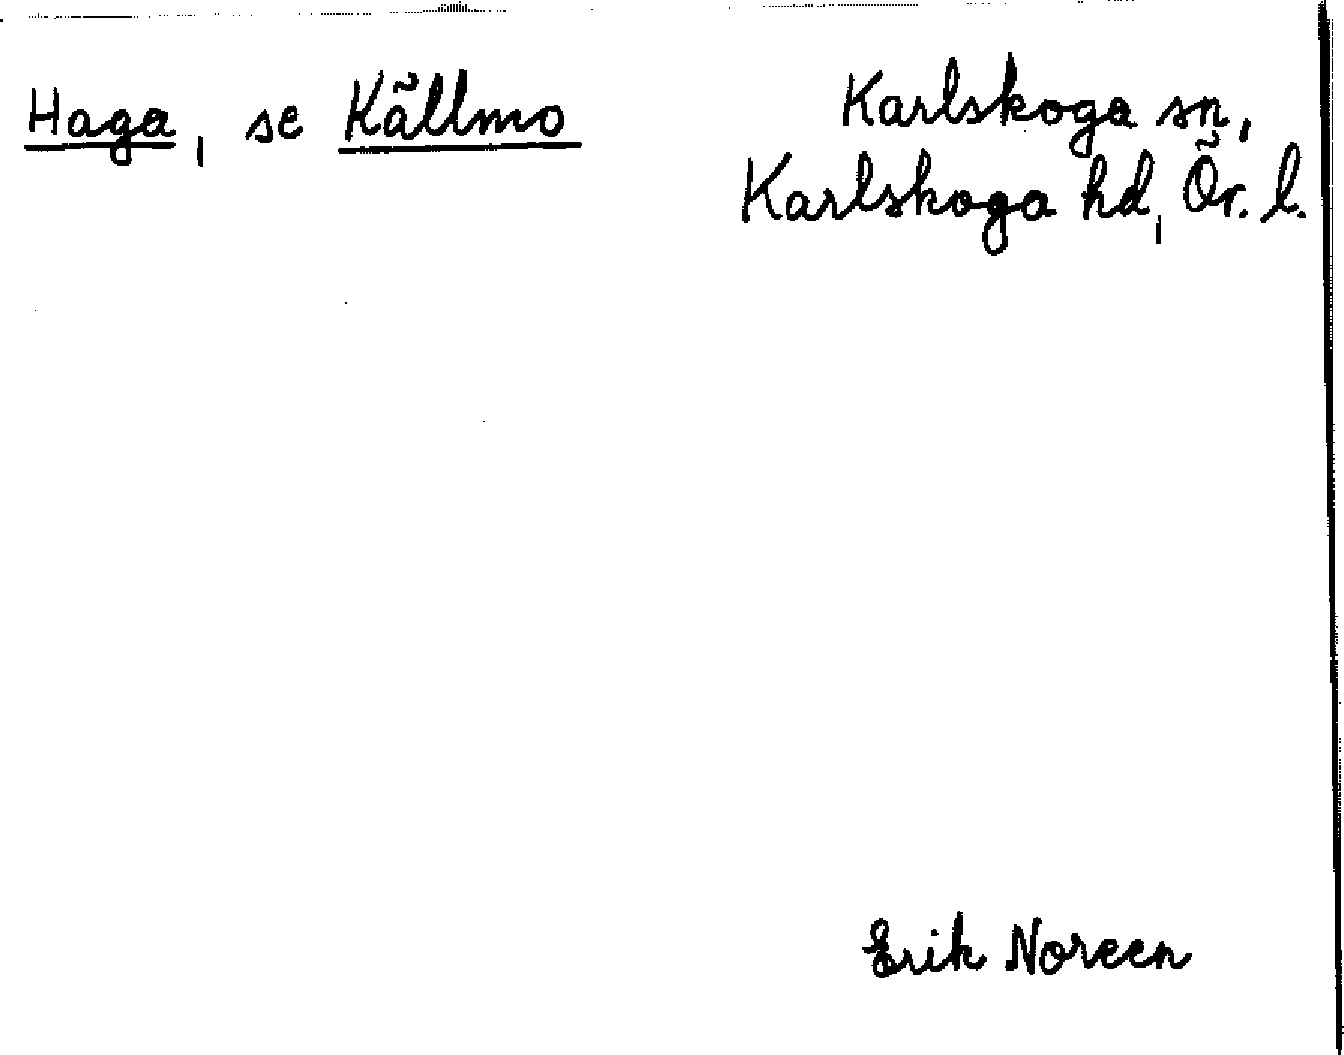 Haga, se Källmo
Karlskoga sn,
Karlskoga hd, Ör. l.
Erik Noreen